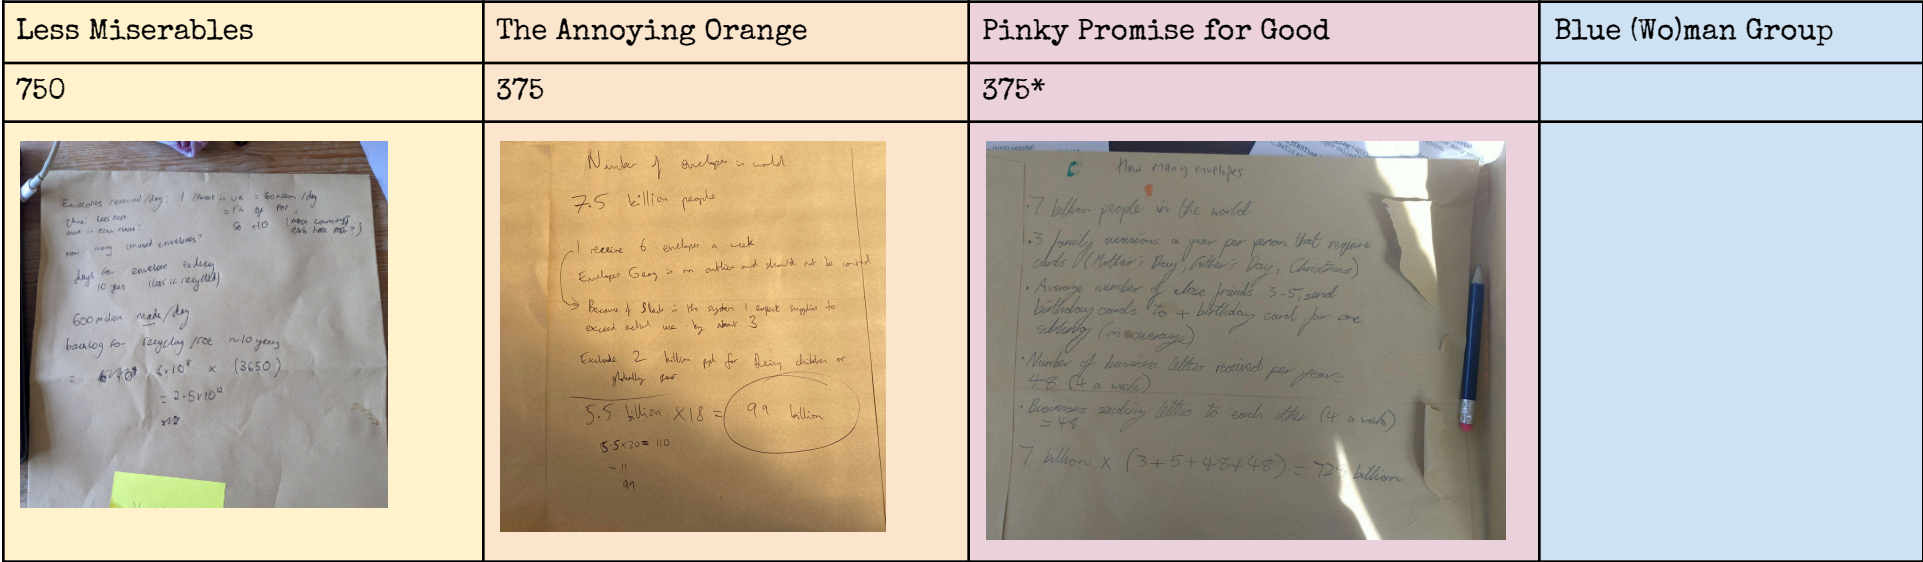 Less Miserables
The Annoying Orange
Pinky Promise for Good
Blue (Wo)man Group
750
375
375*
Envelopes received/day: 1 /house in UK = 60 million /day
= 1% of pop.
so x10
How many unused envelopes?
days for envelope to decay
10 years (less if recycled)
600 million made/day
backlog for recycling/rot ~10 years
= 6x10⁸ x (3650)
= 2.5x10¹²
Number of envelopes in world
7.5 billion people
I receive 6 envelopes a week
Envelopes Georg is an outlier and should not be counted
Because of slack in the system I expect supplies to
exceed actual use by about 3
Exclude 2 billion ppl for being children or
globally poor
5.5 billion x18 = 99 billion
5.5x20 = 110
- 11
99
How many envelopes
•7 billion people in the world
•3 family occasions a year per person that require
cards (Mother's Day, Father's Day, Christmas)
•Average number of close friends 3-5, send
birthday cards to + birthday card for one
sibling (on average)
•Number of business letters received per year =
48 (4 a week)
•Businesses sending letters to each other (4 a week)
= 48
7 billion x (3+5+48+48) = 728 billion